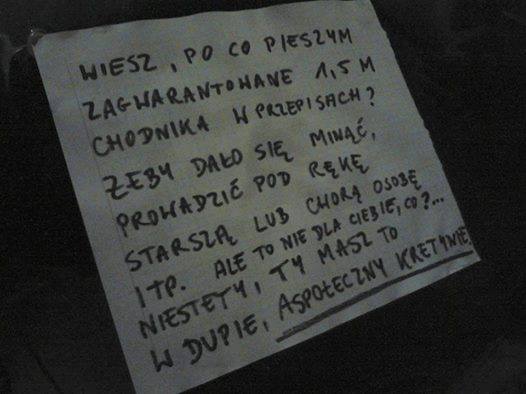 WIESZ, PO CO PIESZYM
ZAGWARANTOWANE 1,5 M
CHODNIKA W PRZEPISACH?
ŻEBY DAŁO SIĘ MINĄĆ,
PROWADZIĆ POD RĘKĘ
STARSZĄ LUB CHORĄ OSOBĘ
ITP. ALE TO NIE DLA CIEBIE, CO?...
NIESTETY, TY MASZ TO
W DUPIE, ASPOŁECZNY KRETYNIE